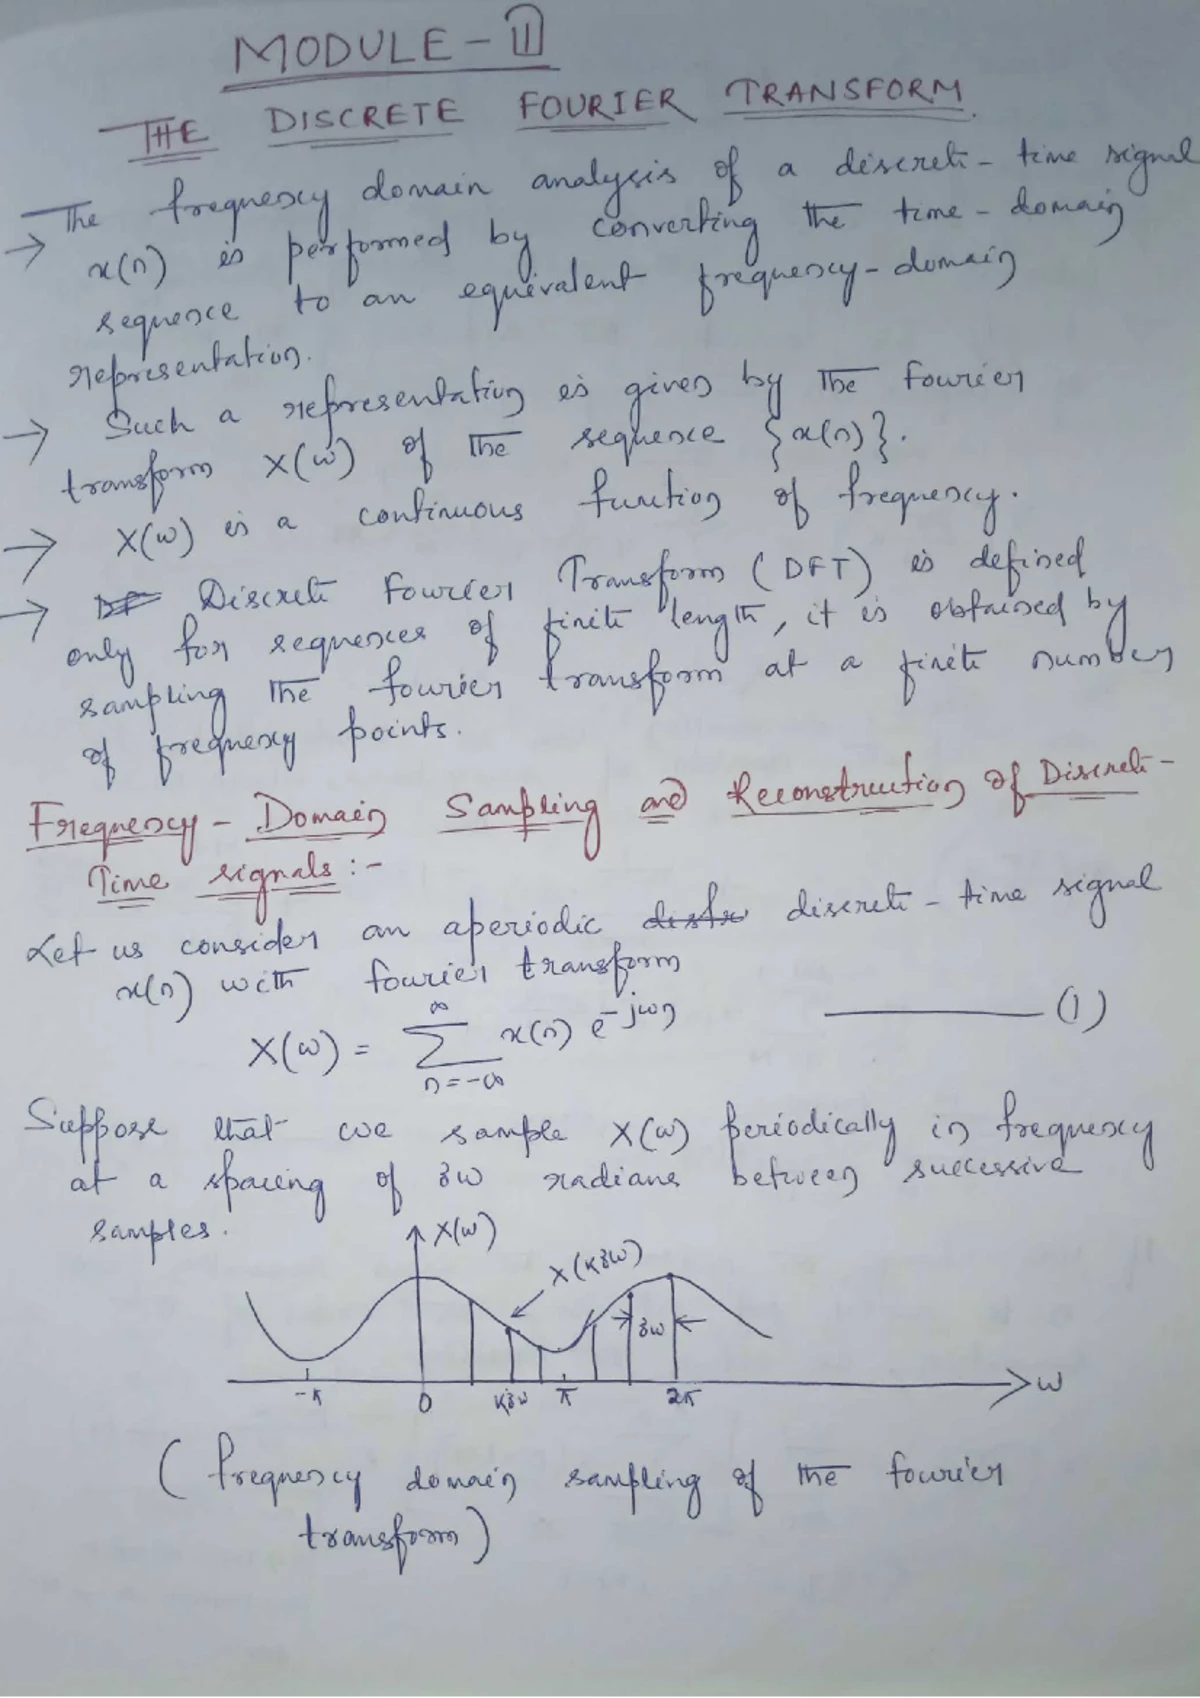 MODULE - II
THE DISCRETE FOURIER TRANSFORM.
→ The frequency domain analysis of a discrete - time signal
x(n) is performed by converting the time - domain
sequence to an equivalent frequency - domain
representation.
→ Such a representation is given by the fourier
transform X(ω) of the sequence {x(n)}.
→ X(ω) is a continuous function of frequency.
→ Discrete Fourier Transform (DFT) is defined
only for sequences of finite length, it is obtained by
sampling the fourier transform at a finite number
of frequency points.
Frequency - Domain Sampling and Reconstruction of Discrete -
Time signals :-
Let us consider an aperiodic discrete - time signal
x(n) with fourier transform
X(ω) = ∑ x(n) e^-jωn ——— (1)
∞
n = -∞
Suppose that we sample X(ω) periodically in frequency
at a spacing of δω radians between successive
samples.
X(ω)
X(kδω)
δω
-π 0 kδω π 2π ω
( frequency domain sampling of the fourier
transform )